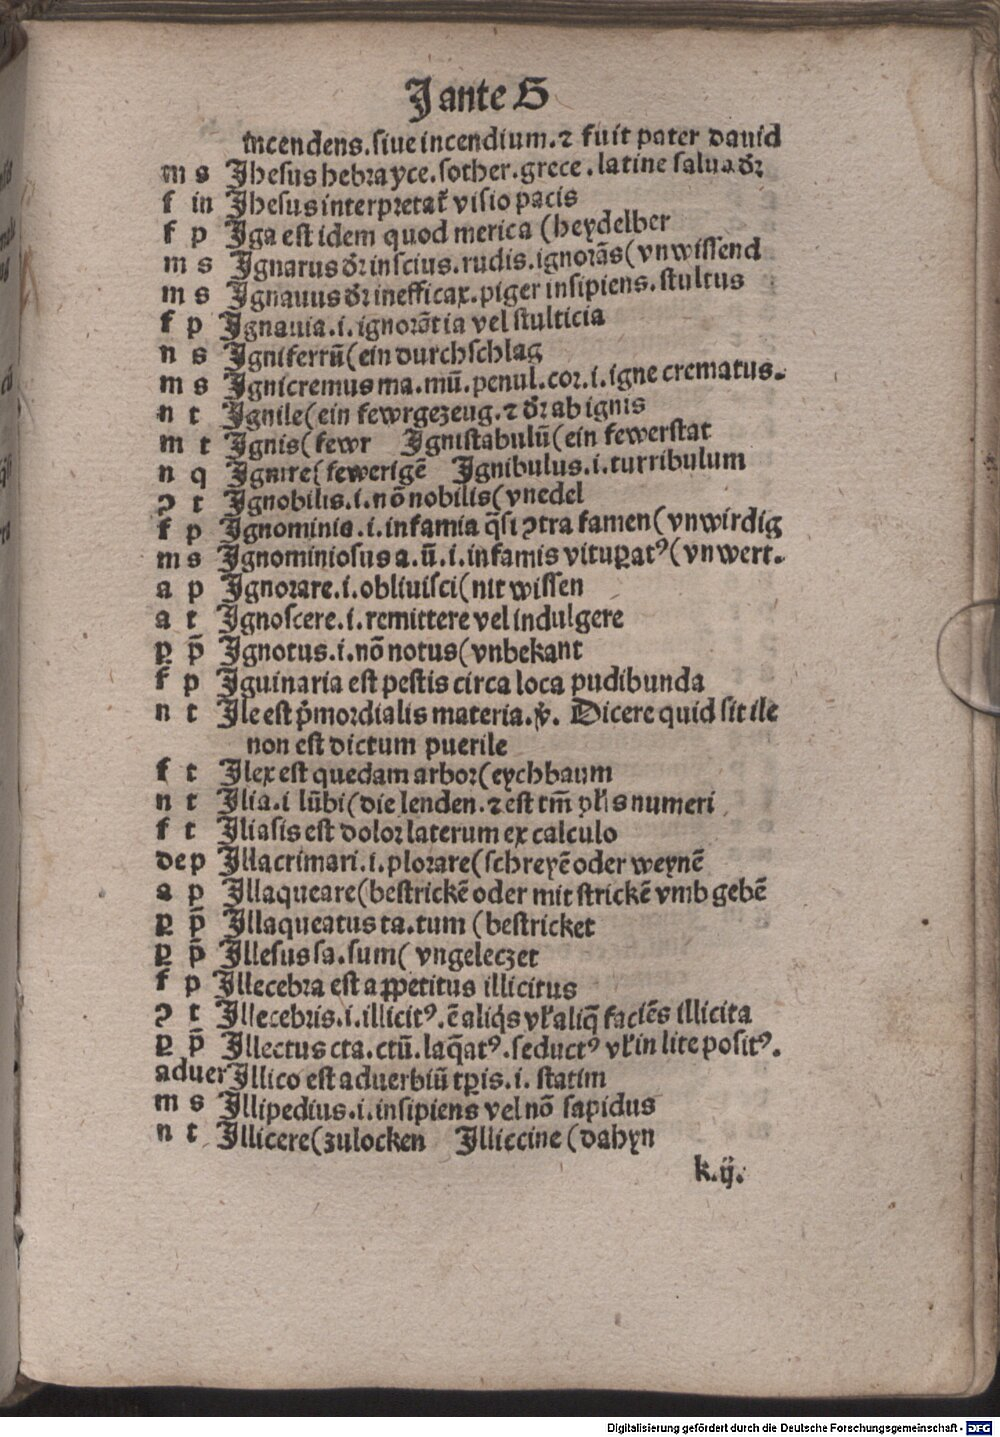 J ante G
incendens. siue incendium. ⁊ fuit pater dauid
m s Jhesus hebrayce. sother. grece. latine saluator
f in Jhesus interpretat᷑ visio pacis
f p Jga est idem quod merica (heydelber
m s Jgnarus dr̄ inscius. rudis. ignorās (vnwissend
m s Jgnauus dr̄ inefficax. piger insipiens. stultus
f p Jgnauia. i. ignorātia vel stulticia
n s Jgniferrū (ein durchschlag
m s Jgnicremus ma. mū. penul. cor. i. igne crematus.
n t Jgnile (ein fewrgezeug. ⁊ dr̄ ab ignis
m t Jgnis (fewr Jgnistabulū (ein fewerstat
n q Jgnire (fewerigē Jgnibulus. i. turribulum
ɔ t Jgnobilis. i. nō nobilis (vnedel
f p Jgnominia. i. infamia q̄si ɔtra famen (vnwirdig
m s Jgnominiosus a. ū. i. infamis vituꝑatꝰ (vnwert.
a p Jgnorare. i. obliuisci (nit wissen
a t Jgnoscere. i. remittere vel indulgere
ꝑ p̄ Jgnotus. i. nō notus (vnbekant
f p Jguinaria est pestis circa loca pudibunda
n t Jle est p̄mordialis materia. ꝟ. Dicere quid sit ile
non est dictum puerile
f t Jlex est quedam arbor (eychbaum
n t Jlia. i lūbi (die lenden. ⁊ est tm̄ pl̄is numeri
f t Jliasis est dolor laterum ex calculo
de p Jllacrimari. i. plorare (schreyē oder weynē
a p Jllaqueare (bestrickē oder mit strickē vmb gebē
ꝑ p̄ Jllaqueatus ta. tum (bestricket
ꝑ p̄ Jllesus sa. sum (vngeleczet
f p Jllecebra est appetitus illicitus
ɔ t Jllecebris. i. illicitꝰ. ē aliq̄s vl̄ aliq̄ faciēs illicita
ꝑ p̄ Jllectus cta. ctū. laq̄atꝰ. seductꝰ vl̄ in lite positꝰ.
aduer Jllico est aduerbiū tꝑis. i. statim
m s Jllipedius. i. insipiens vel nō sapidus
n t Jllicere (zulocken Jlliccine (dahyn
k. ij.
Digitalisierung gefördert durch die Deutsche Forschungsgemeinschaft - DFG